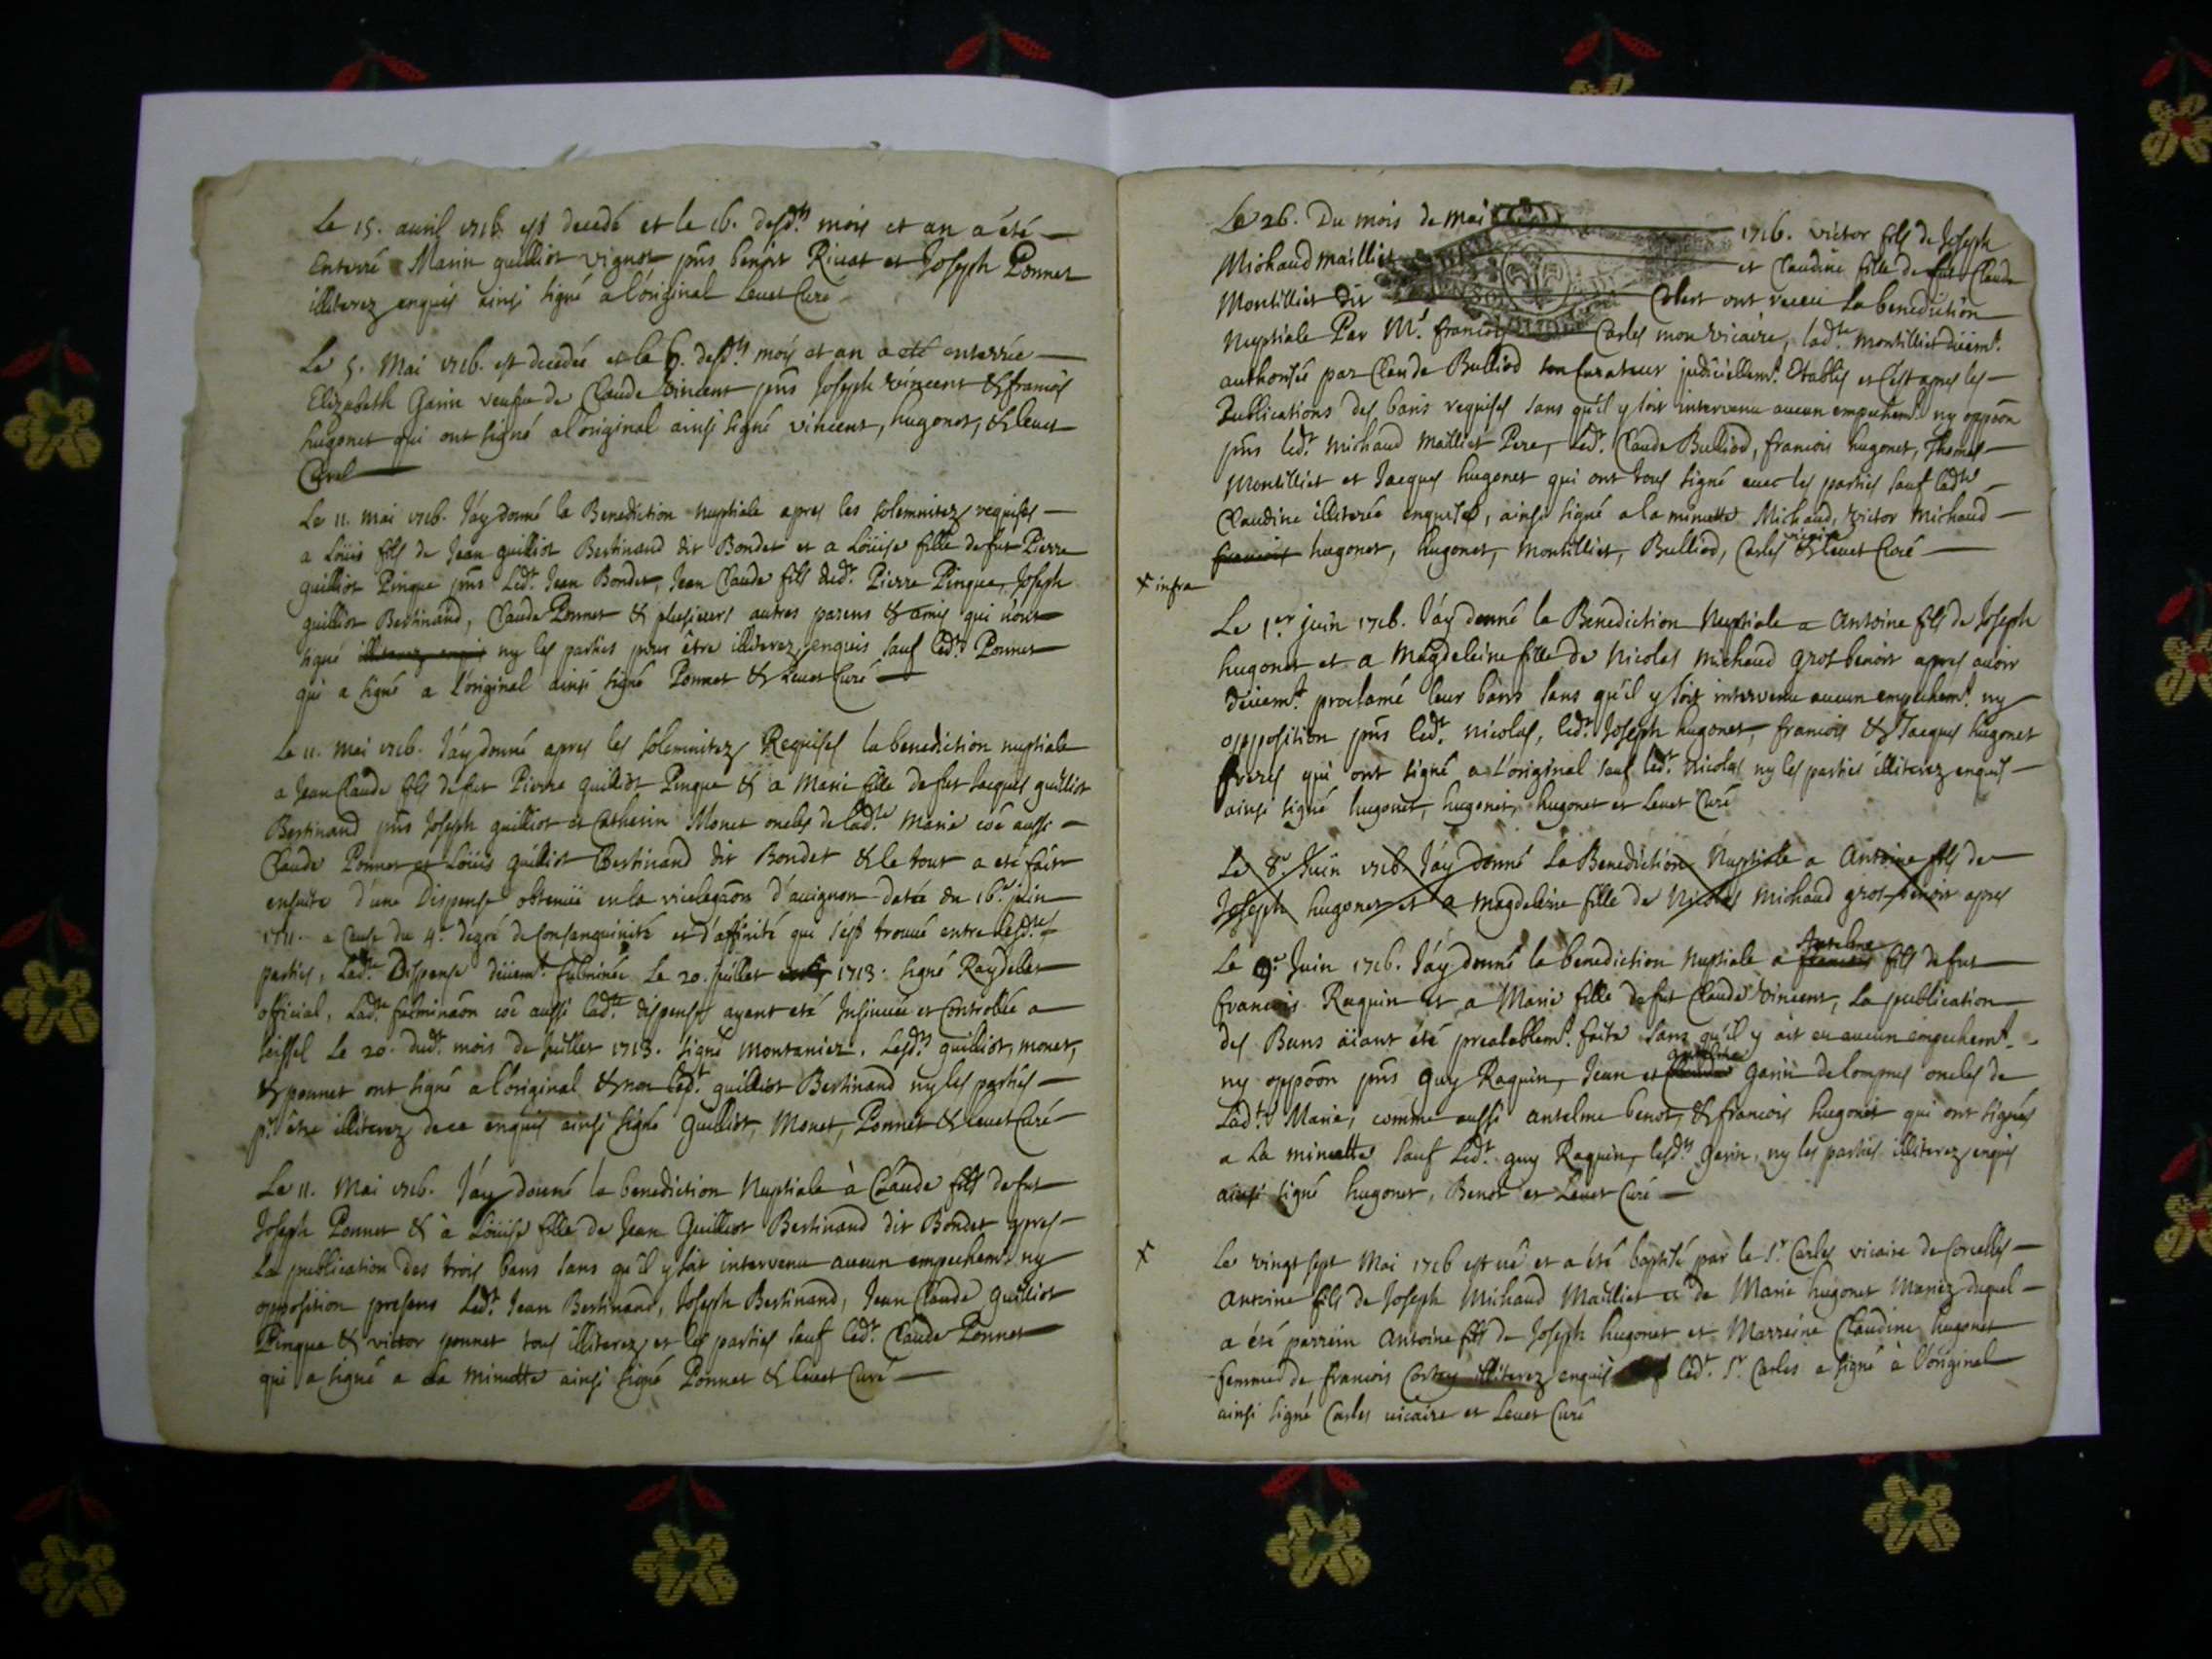 Le 15. avril 1716. est decedé et le 16. desd.ts mois et an a été
Enterré Marin guilliot vignot pñs benoit Rivat et Joseph Ponnet
illiterez enquis ainsi signé a l'original Levet Curé
Le 5. Mai 1716. est decedée et le 6. desd.ts mois et an a eté enterrée
Elizabeth Garin veufve de Claude Vincent pñs Joseph vincent & francois
hugonet qui ont signé a l'original ainsi signé vincent, hugonet, & levet
Curé
Le 11. mai 1716. J'áy donné la Benediction nuptiale apres les solemnitez requises
a Loüis fils de Jean guilliot Bertinand dit Bondet et a Loüise fille de fut Pierre
guilliot Pinque pñs Led.t Jean Bondet, Jean Claude fils dud.t Pierre Pinque, Joseph
guilliot Bertinand, Claude Ponnet & plusieurs autres parens & amis qui n'ont
signé illiterez enquis ny les parties pour être illiterez enquis sauf led.t Ponnet
qui a signé a l'original ainsi signé Ponnet & Levet Curé
Le 11. mai 1716. J'áy donné apres les solemnitez Requises la benediction nuptiale
a Jean Claude fils de fut Pierre guilliot Pinque & a Marie fille de fut Jacques guilliot
Bertinand pñs Joseph guilliot et Catherin Monet oncles de lad.te Marie cõe aussi
Claude Ponnet et Loüis guilliot Bertinand dit Bondet & le tout a eté fait
ensuite d'une Dispense obtenüe en la vicelegãon d'avignon datée du 16.e juin
1711. a cause du 4.e degré de consanguinité et d'affinité qui s'est trouvé entre lesd.tes
parties, Lad.te Dispense düem.t fulminée Le 20. juillet 1713. signé Raydellet
official, Lad.te fulminãon cõe aussi lad.te dispense ayant eté Insinuée et Controllée a
seissel Le 20. dud.t mois de juillet 1713. signé Montanier. Lesd.ts guilliot, monet,
& ponnet ont signé a l'original & non led.t guilliot Bertinand ny les parties
p.r être illiterez de ce enquis ainsi signé guilliot, Monet, Ponnet & levet Curé
Le 11. Mai 1716. J'áy donné la benediction Nuptiale à Claude fils de fut
Joseph Ponnet & à Loüise fille de Jean Guilliot Bertinand dit Bondet apres
La publication des trois bans sans qu'il y soit intervenu aucun empechem.t ny
opposition presens Led.t Jean Bertinand, Joseph Bertinand, Jean Claude guilliot
Pinque & victor ponnet tous illiterez et les parties sauf led.t Claude Ponnet
qui a signé a La minutte ainsi signé Ponnet & levet Curé
Le 26. Du mois de mai 1716. victor fils de Joseph
Michaud mailliet et Claudine fille de fut Claude
Montilliet dit Colret ont receu La benediction
Nuptiale Par M.r francois Carles mon vicaire, lad.te montilliet düem.t
authorisée par Claude Bulliod son Curateur judiciellem.t Etablis et c'est apres les
Publications des bans requises sans qu'il y soit intervenu aucun empechem.t ny oppõon
pñs led.t michaud mailliet Pere, Led.t Claude Bulliod, francois hugonet, Thomas
Montilliet et Jacques hugonet qui ont tous signé avec les parties sauf lad.te
Claudine illiterée enquise, ainsi signé a la minutte Michaud, victor Michaud
francois hugonet, hugonet, montilliet, Bulliod, Carles vicaire & levet Curé
x infra
Le 1.er juin 1716. J'áy donné la Benediction Nuptiale a Antoine fils de Joseph
hugonet et a Magdeleine fille de Nicolas michaud gros benoit apres avoir
düem.t proclamé leur bans sans qu'il y soit intervenu aucun empechem.t ny
opposition pñs led.t Nicolas, led.t Joseph hugonet, francois & Jacques hugonet
freres qui ont signé a l'original sauf led.t Nicolas ny les parties illiterez enquis
ainsi signé hugonet, hugonet, hugonet et Levet Curé
Le 8.e Juin 1716. J'áy donné La Benediction Nuptiale a Antoine fils de
Joseph hugonet et a Magdeleine fille de Nicolas Michaud gros benoit apres
Le 9.e Juin 1716. J'áy donné la benediction nuptiale a francois Anselme fils de fut
francois Raquin et a Marie fille de fut Claude Vincent, La publication
des Bans aïant été prealablem.t faite sans qu'il y ait eu aucun empechem.t
ny oppõon pñs guy Raquin, Jean et Garin de lompnes oncles de
Lad.te Marie, comme aussi anselme benot, & francois hugonet qui ont signés
a La minutte sauf Led.t guy Raquin, lesd.ts Garin, ny les parties illiterez enquis
ainsi signé hugonet, Benot et Levet Curé
x
Le vingt sept Mai 1716 est né et a été baptisé par le S.r Carles vicaire de Corcelles
Antoine fils de Joseph Michaud Mailliet et de Marie hugonet Mariez duquel
a été parrein Antoine fils de Joseph hugonet et Marreine Claudine hugonet
femme de francois illiterez enquis led.t S.r Carles a signé à l'original
ainsi signé Carles vicaire et Levet Curé